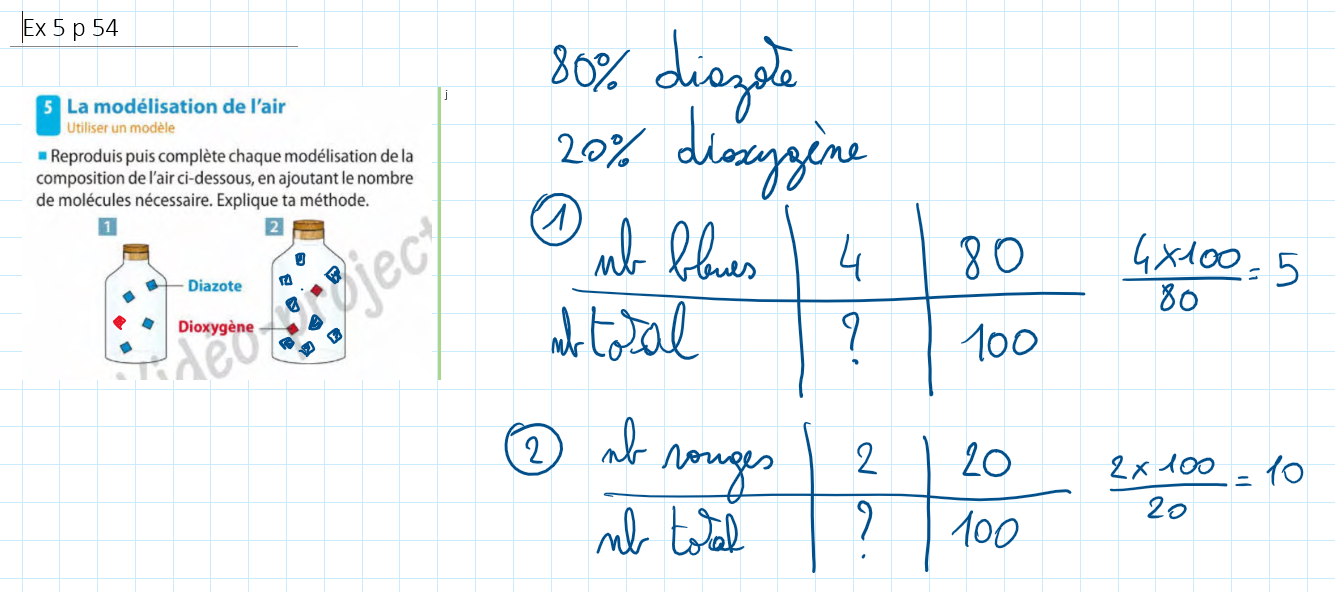 Ex 5 p 54
5 La modélisation de l'air
Utiliser un modèle
Reproduis puis complète chaque modélisation de la
composition de l'air ci-dessous, en ajoutant le nombre
de molécules nécessaire. Explique ta méthode.
1 2
Diazote
Dioxygène
Vidéo-project
j
80% diazote
20% dioxygène
1
nb bleues 4 80
nb total ? 100
4 × 100 / 80 = 5
2
nb rouges 2 20
nb total ? 100
2 × 100 / 20 = 10